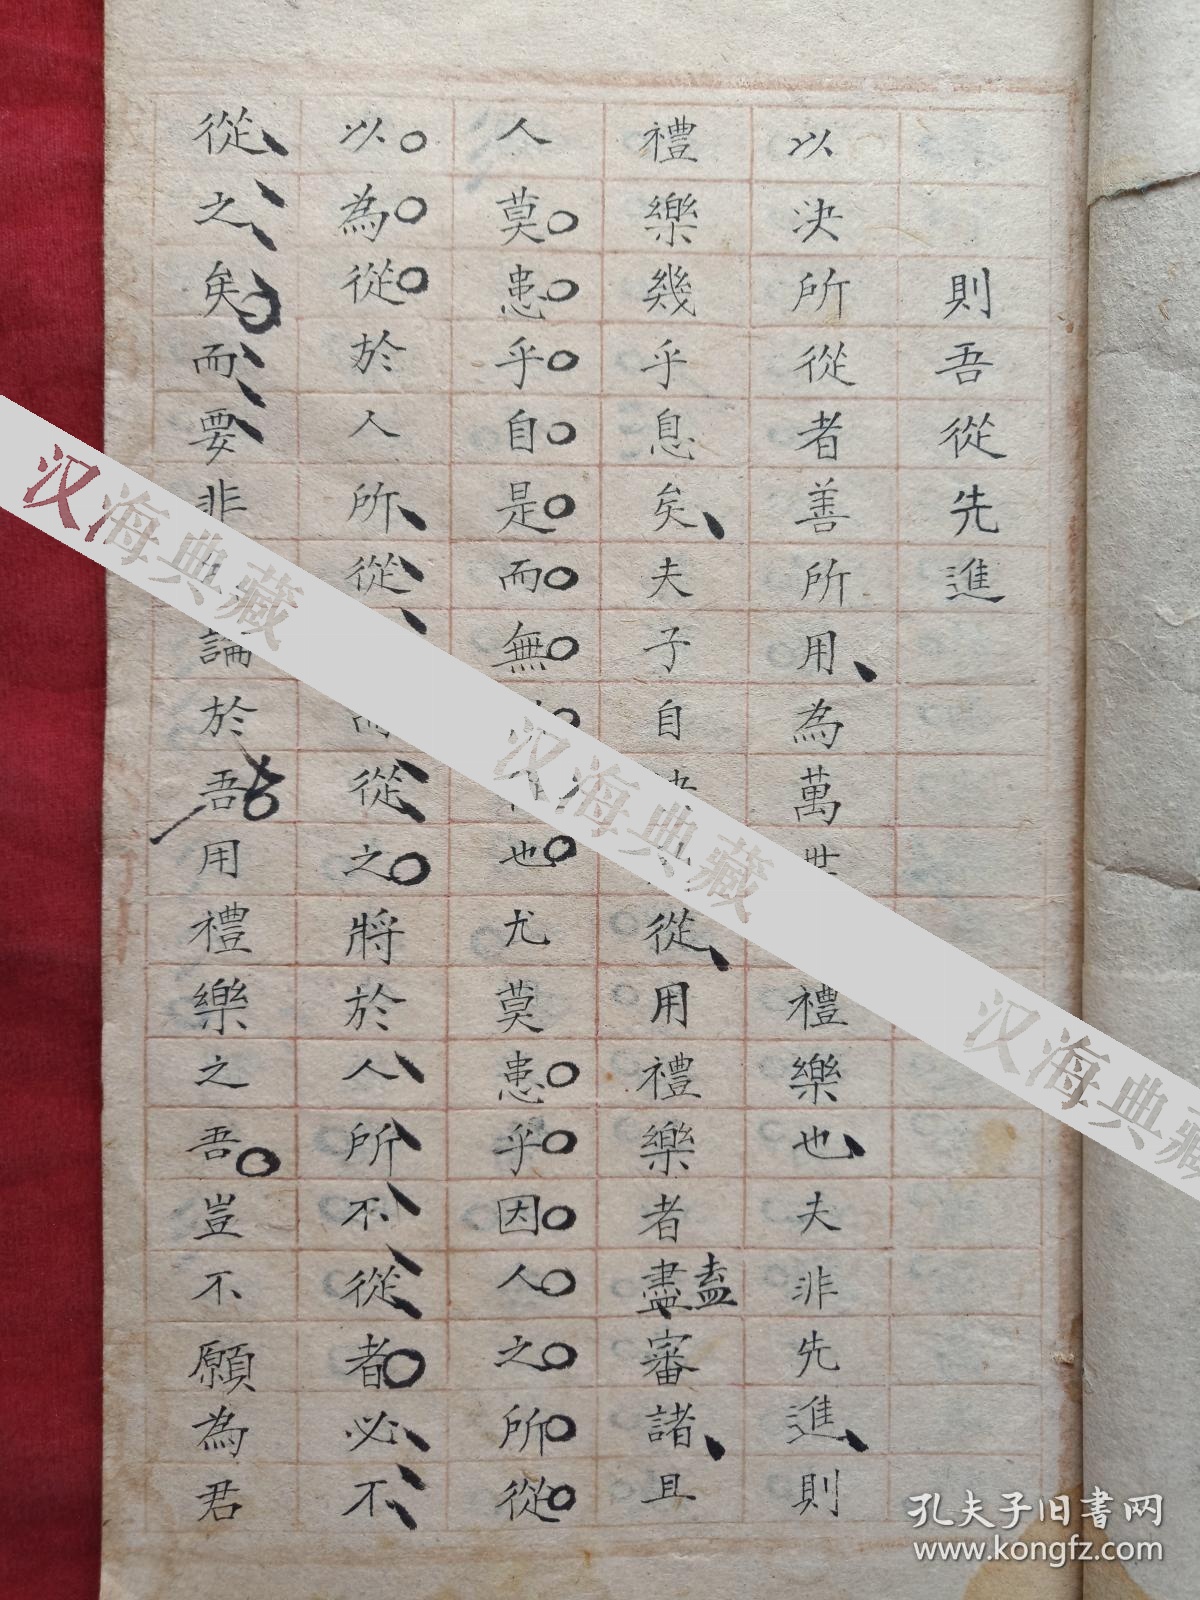 則吾從先進
以決所從者善所用為萬世禮樂也夫非先進則
禮樂幾乎息矣夫子自從用禮樂者盡盍審諸且
人莫患乎自是而無也尤莫患乎因人之所從
以為從於人所從而從之將於人所不從者必不
從之矣而要非論於吾用禮樂之吾豈不願為君
汉海典藏
汉海典藏
汉海典藏
孔夫子旧书网
www.kongfz.com